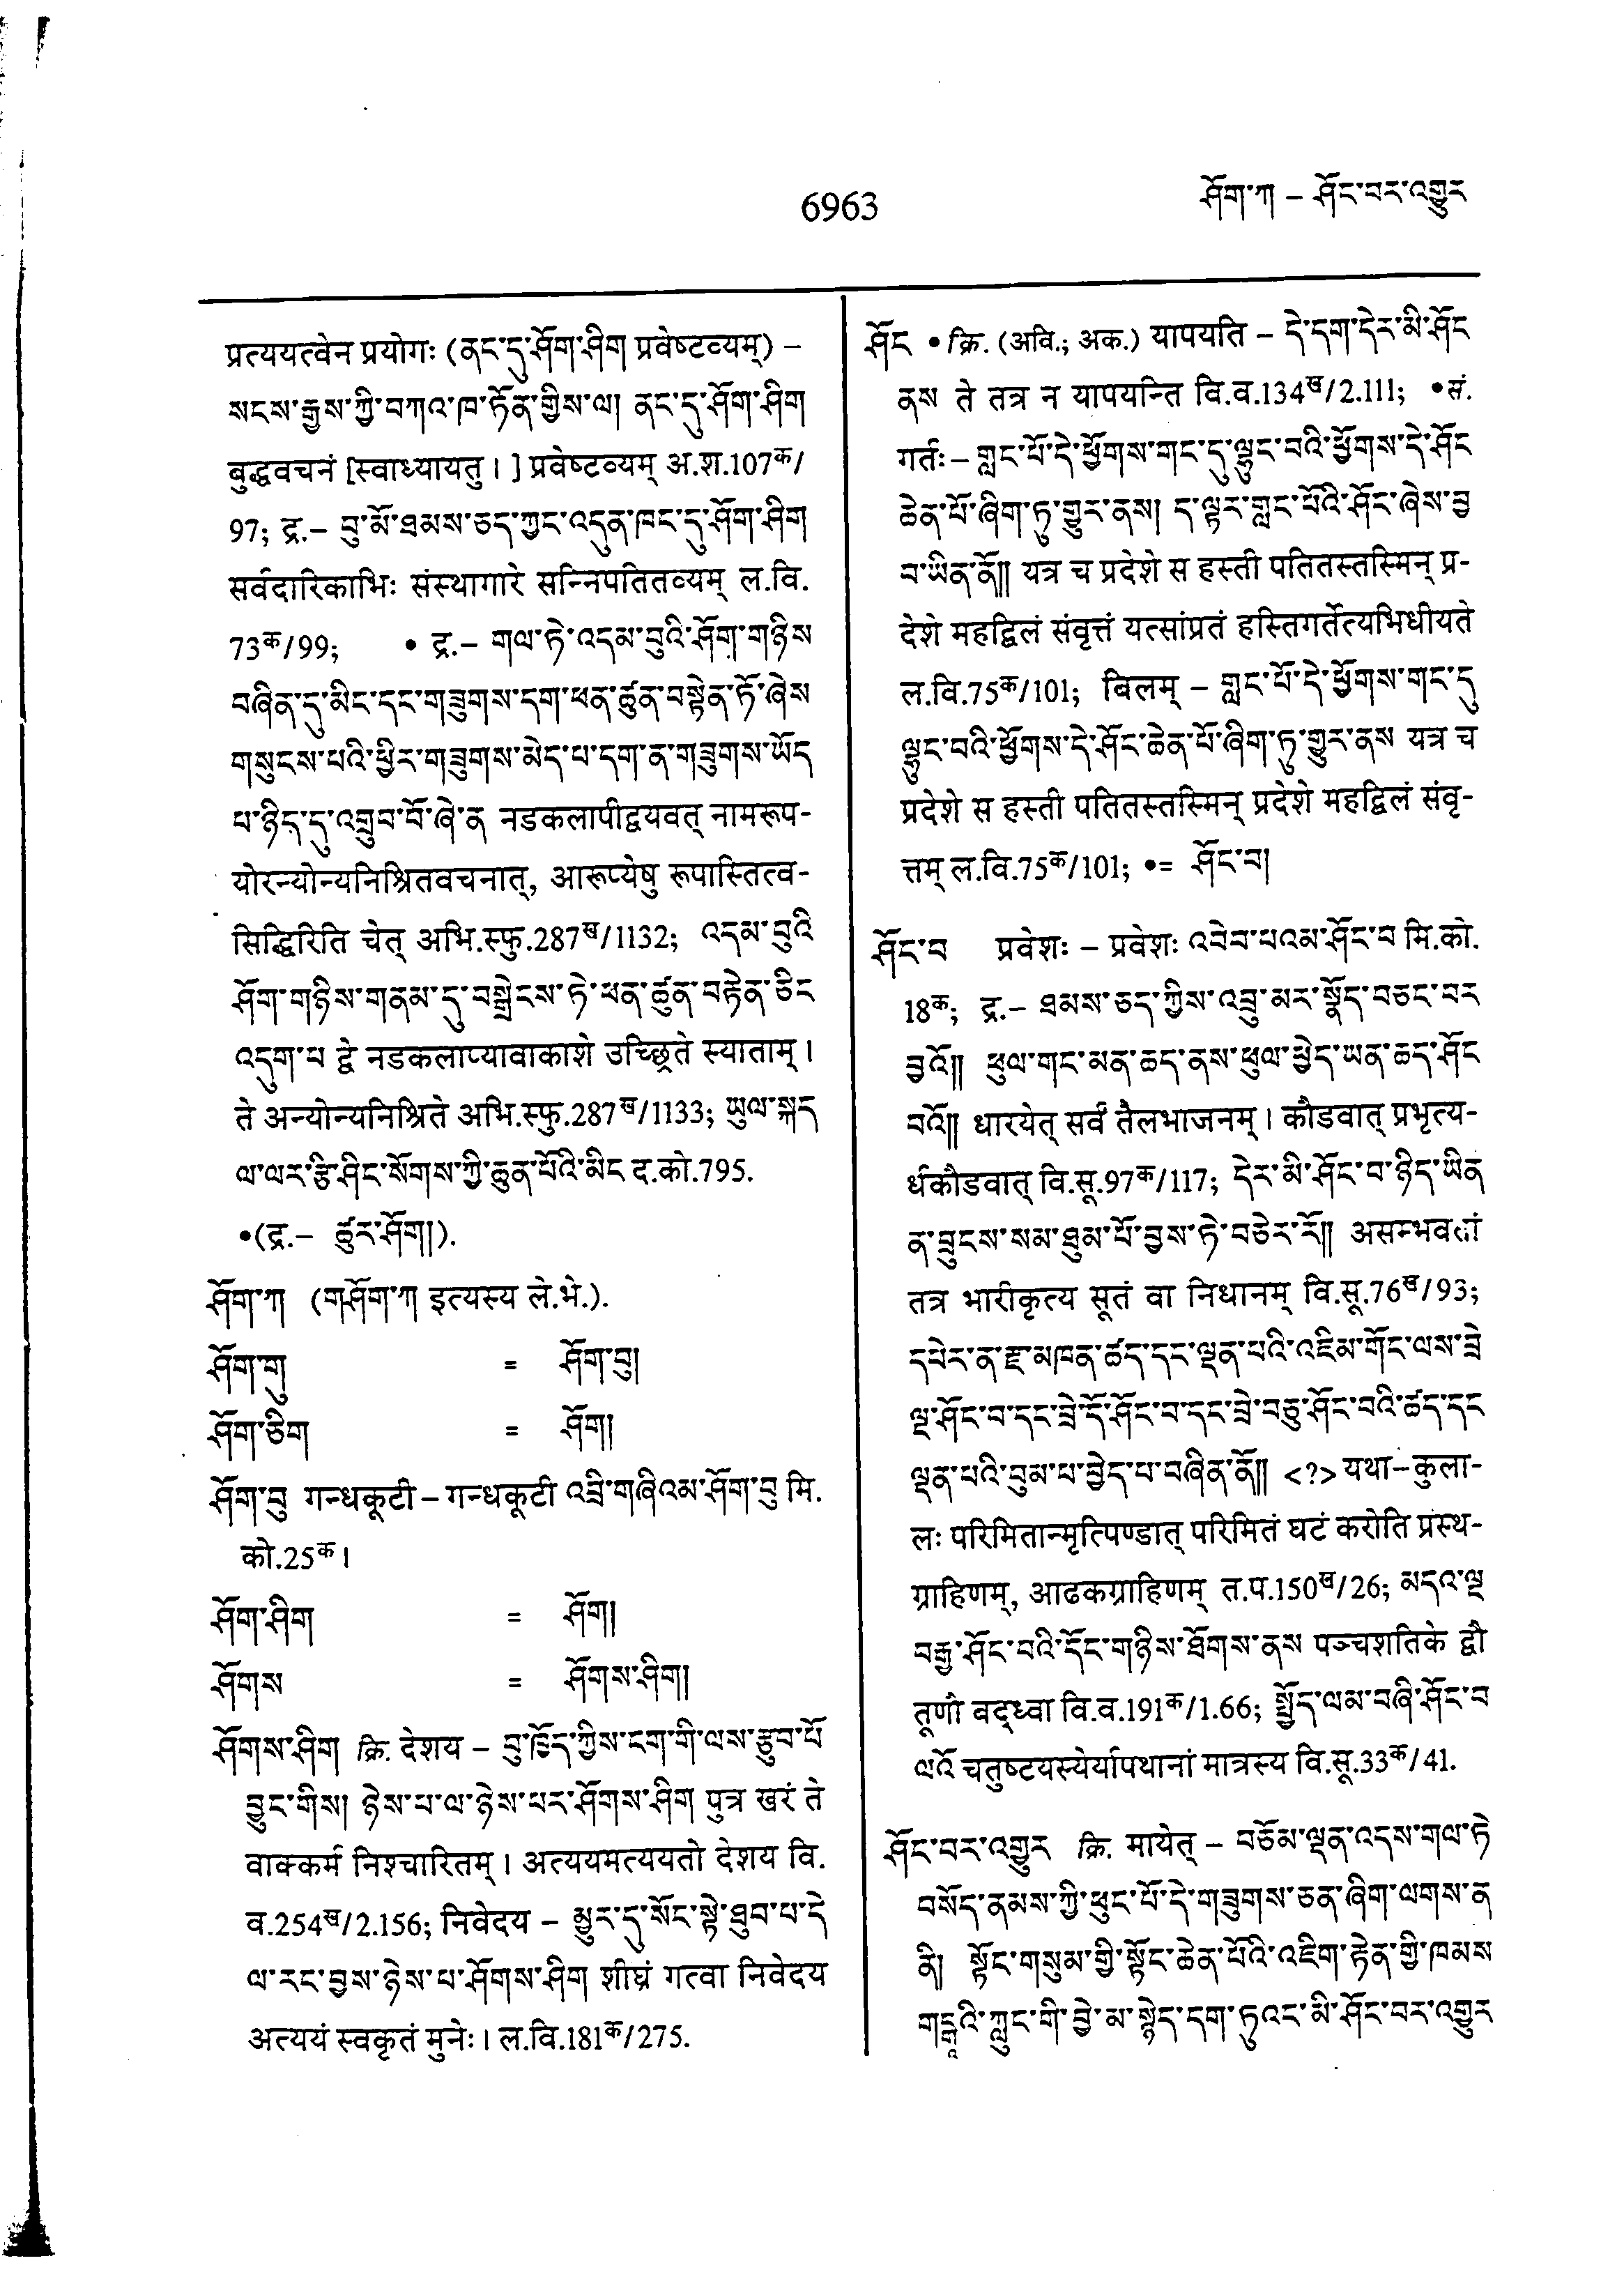 6963
ཤོག་ཀ – ཤོང་བར་འགྱུར
प्रत्ययत्वेन प्रयोगः (ནང་དུ་ཤོག་ཤིག प्रवेष्टव्यम्) –
སངས་རྒྱས་ཀྱི་བཀའ་ཁ་ཏོན་གྱིས་ལ། ནང་དུ་ཤོག་ཤིག
बुद्धवचनं [स्वाध्यायतु । ] प्रवेष्टव्यम् अ.श.107क/
97; द्र.– བུ་མོ་ཐམས་ཅད་ཀྱང་འདུན་ཁང་དུ་ཤོག་ཤིག
सर्वदारिकाभिः संस्थागारे सन्निपतितव्यम् ल.वि.
73क/99; • द्र.– གལ་ཏེ་འདམ་བུའི་ཤོག་གཉིས
བཞིན་དུ་མིང་དང་གཟུགས་དག་ཕན་ཚུན་བསྟེན་ཏོ་ཞེས
གསུངས་པའི་ཕྱིར་གཟུགས་མེད་པ་དག་ན་གཟུགས་ཡོད
པ་ཉིད་དུ་འགྲུབ་བོ་ཞེ་ན नडकलापीद्वयवत् नामरूप-
योरन्योन्यनिश्रितवचनात्, आरूप्येषु रूपास्तित्व-
सिद्धिरिति चेत् अभि.स्फु.287ख/1132; འདམ་བུའི
ཤོག་གཉིས་གནམ་དུ་བསྒྲེངས་ཏེ་ཕན་ཚུན་བརྟེན་ཅིང
འདུག་པ द्वे नडकलाप्यावाकाशे उच्छ्रिते स्याताम् ।
ते अन्योन्यनिश्रिते अभि.स्फु.287ख/1133; ཡུལ་སྐད
ལ་ལར་རྩི་ཤིང་སོགས་ཀྱི་ཆུན་པོའི་མིང द.को.795.
•(द्र.– ཚུར་ཤོག།).
ཤོག་ཀ (གཤོག་ཀ इत्यस्य ले.भे.).
ཤོག་གུ = ཤོག་བུ།
ཤོག་ཅིག = ཤོག།
ཤོག་བུ गन्धकूटी – गन्धकूटी འབྲི་གཞིའམ་ཤོག་བུ मि.
को.25क ।
ཤོག་ཤིག = ཤོག།
ཤོགས = ཤོགས་ཤིག།
ཤོགས་ཤིག क्रि. देशय – བུ་ཁྱོད་ཀྱིས་ངག་གི་ལས་རྩུབ་པོ
བྱུང་གིས། ཉེས་པ་ལ་ཉེས་པར་ཤོགས་ཤིག पुत्र खरं ते
वाक्कर्म निश्चारितम् । अत्ययमत्ययतो देशय वि.
व.254ख/2.156; निवेदय – མྱུར་དུ་སོང་སྟེ་ཐུབ་པ་དེ
ལ་རང་བྱས་ཉེས་པ་ཤོགས་ཤིག शीघ्रं गत्वा निवेदय
अत्ययं स्वकृतं मुनेः । ल.वि.181क/275.
ཤོང • क्रि. (अवि.; अक.) यापयति – དེ་དག་དེར་མི་ཤོང
ནས ते तत्र न यापयन्ति वि.व.134ख/2.111; • सं.
गर्तः – གླང་པོ་དེ་ཕྱོགས་གང་དུ་ལྷུང་བའི་ཕྱོགས་དེ་ཤོང
ཆེན་པོ་ཞིག་ཏུ་གྱུར་ནས། ད་ལྟར་གླང་པོའི་ཤོང་ཞེས་བྱ
བ་ཡིན་ནོ།། यत्र च प्रदेशे स हस्ती पतितस्तस्मिन् प्र-
देशे महद्विलं संवृत्तं यत्सांप्रतं हस्तिगर्तेत्यभिधीयते
ल.वि.75क/101; बिलम् – གླང་པོ་དེ་ཕྱོགས་གང་དུ
ལྷུང་བའི་ཕྱོགས་དེ་ཤོང་ཆེན་པོ་ཞིག་ཏུ་གྱུར་ནས यत्र च
प्रदेशे स हस्ती पतितस्तस्मिन् प्रदेशे महद्विलं संवृ-
त्तम् ल.वि.75क/101; •= ཤོང་བ།
ཤོང་བ प्रवेशः – प्रवेशः འབེབ་པའམ་ཤོང་བ मि.को.
18क; द्र.– ཐམས་ཅད་ཀྱིས་འབྲུ་མར་སྣོད་བཅང་བར
བྱའོ།། ཕུལ་གང་མན་ཆད་ནས་ཕུལ་ཕྱེད་ཡན་ཆད་ཤོང
བའོ།། धारयेत् सर्वं तैलभाजनम् । कौडवात् प्रभृत्य-
र्धकौडवात् वि.सू.97क/117; དེར་མི་ཤོང་བ་ཉིད་ཡིན
ན་བྲུངས་སམ་ཐུམ་པོ་བྱས་ཏེ་བཅེར་རོ།། असम्भवतां
तत्र भारीकृत्य सूतं वा निधानम् वि.सू.76ख/93;
དཔེར་ན་རྫ་མཁན་ཚད་དང་ལྡན་པའི་འཇིམ་གོང་ལས་བྲེ
ལྔ་ཤོང་བ་དང་བྲེ་དོ་ཤོང་བ་དང་བྲེ་བཅུ་ཤོང་བའི་ཚད་དང
ལྡན་པའི་བུམ་པ་བྱེད་པ་བཞིན་ནོ།། <?> यथा-कुला-
लः परिमितान्मृत्पिण्डात् परिमितं घटं करोति प्रस्थ-
ग्राहिणम्, आढकग्राहिणम् त.प.150ख/26; མདའ་ལྔ
བརྒྱ་ཤོང་བའི་དོང་གཉིས་ཐོགས་ནས पञ्चशतिके द्वौ
तूणी वद्ध्वा वि.व.191क/1.66; སྤྱོད་ལམ་བཞི་ཤོང་བ
ལའོ चतुष्टयस्येर्यापथानां मात्रस्य वि.सू.33क/41.
ཤོང་བར་འགྱུར क्रि. मायेत् – བཅོམ་ལྡན་འདས་གལ་ཏེ
བསོད་ནམས་ཀྱི་ཕུང་པོ་དེ་གཟུགས་ཅན་ཞིག་ལགས་ན
ནི། སྟོང་གསུམ་གྱི་སྟོང་ཆེན་པོའི་འཇིག་རྟེན་གྱི་ཁམས
གངྒཱའི་ཀླུང་གི་བྱེ་མ་སྙེད་དག་ཏུའང་མི་ཤོང་བར་འགྱུར